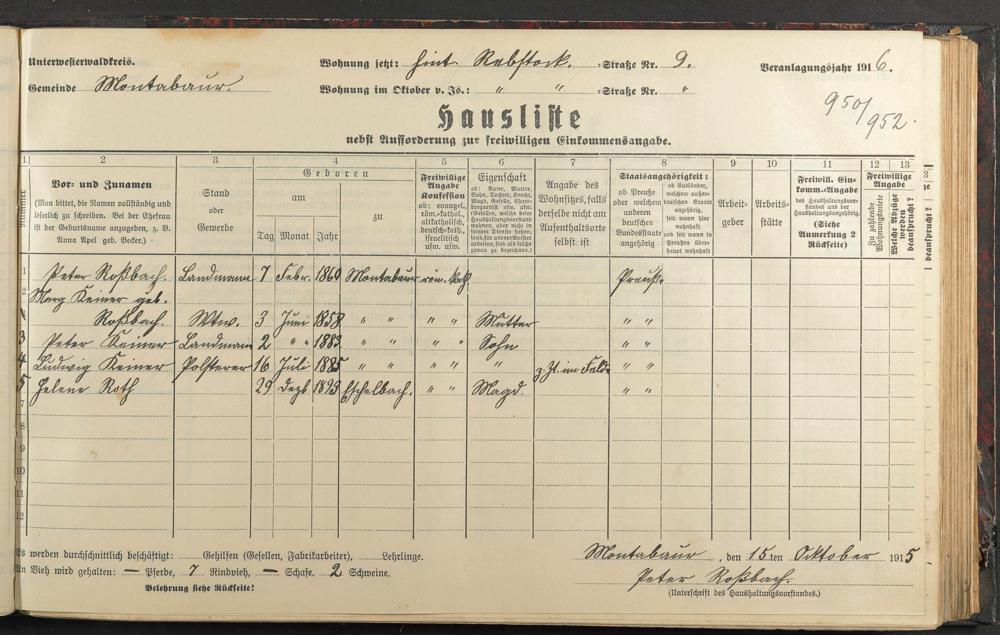 Unterwesterwaldkreis. Wohnung jetzt: Hint. Rebstock. =Straße Nr. 9. Veranlagungsjahr 1916.
Gemeinde Montabaur. Wohnung im Oktober v. Js.: " " =Straße Nr. "
950/952.
Hausliste
nebst Aufforderung zur freiwilligen Einkommensangabe.
1 2 3 4 5 6 7 8 9 10 11 12 13
Nummer
Vor- und Zunamen
(Man bittet, die Namen vollständig und
leserlich zu schreiben. Bei der Ehefrau
ist der Geburtsname anzugeben, z. B.
Anna Apel geb. Becker.)
Stand
oder
Gewerbe
Geboren
am
zu
Tag Monat Jahr
Freiwillige
Angabe
Konfession
ob: evangel.,
röm.-kathol.,
altkatholisch,
deutsch-kath.,
israelitisch
usw. usw.
Eigenschaft
ob: Vater, Mutter,
Sohn, Tochter, Knecht,
Magd, Gehilfe,
Angabe des
Wohnsitzes, falls
derselbe nicht am
Aufenthaltsorte
selbst ist
Staatsangehörigkeit:
ob Preuße
oder welchem
anderen
deutschen
Bundesstaate
angehörig
ob Ausländer,
welchem außer-
deutschen Staate
angehörig,
seit wann hier
wohnhaft
und seit wann in
Preußen über-
haupt wohnhaft
Arbeit-
geber
Arbeits-
stätte
Freiwill. Ein-
komm.-Angabe
des Haushaltungsvor-
standes und der
Haushaltungsangehörig.
(Siehe
Anmerkung 2
Rückseite)
Freiwillige
Angabe
Zu zahlende
Wohnungsmiete
Welche Abzüge
werden
beansprucht?
1 Peter Roßbach. Landmann 7 Febr. 1869 Montabaur röm. kath. Preuß.
2 Marg. Keiner geb.
Roßbach. Wtw. 3 Juni 1858 " " " " Mutter " "
3 Peter Keiner Landmann 2 " " 1883 " " " " Sohn " "
4 Ludwig Keiner Polsterer 16 Juli 1885 " " " " " z. Zt. im Felde " "
5 Helene Roth 29 Dezb. 1893 Eschelbach. " " Magd. " "
7
8
9
10
11
12
Es werden durchschnittlich beschäftigt: Gehilfen (Gesellen, Fabrikarbeiter), Lehrlinge. Montabaur, den 15ten Oktober 1915
An Vieh wird gehalten: — Pferde, 7 Rindvieh, — Schafe. 2 Schweine. Peter Roßbach.
Belehrung siehe Rückseite! (Unterschrift des Haushaltungsvorstandes.)